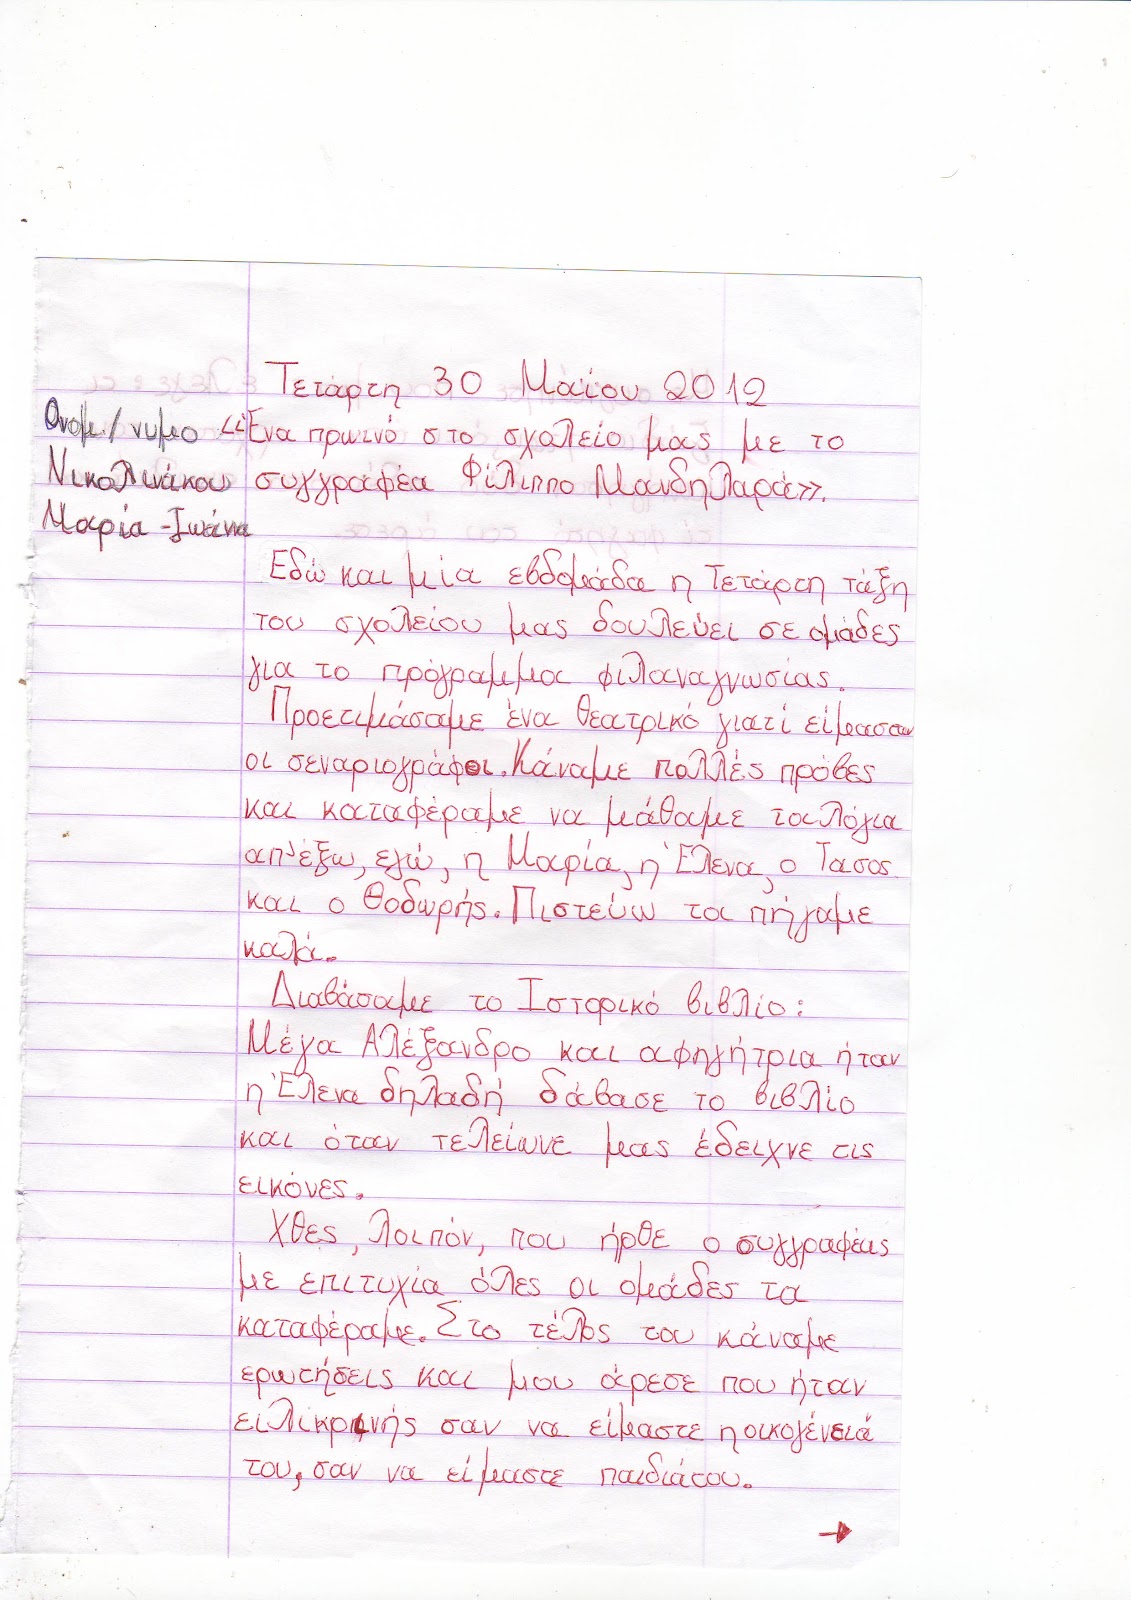 Τετάρτη 30 Μαΐου 2012
Ονομ./νυμο «Ένα πρωινό στο σχολείο μας με το
Νικολινάκου συγγραφέα Φίλιππο Μανδηλαρά».
Μαρία-Ιωάνα
Εδώ και μία εβδομάδα η Τετάρτη τάξη
του σχολείου μας δουλεύει σε ομάδες
για το πρόγραμμα φιλαναγνωσίας.
Προετιμάσαμε ένα θεατρικό γιατί είμασταν
οι σεναριογράφοι. Κάναμε πολλές πρόβες
και καταφέραμε να μάθαμε τα λόγια
απ'έξω, εγώ, η Μαρία, η Έλενα, ο Τασος
και ο Θοδωρής. Πιστεύω τα πήγαμε
καλά.
Διαβάσαμε το Ιστορικό βιβλίο:
Μέγα Αλέξανδρο και αφηγήτρια ήταν
η Έλενα δηλαδή διάβασε το βιβλίο
και όταν τελείωνε μας έδειχνε τις
εικόνες.
Χθες, λοιπόν, που ήρθε ο συγγραφέας
με επιτυχία όλες οι ομάδες τα
καταφέραμε. Στο τέλος του κάναμε
ερωτήσεις και μου άρεσε που ήταν
ειλικρινής σαν να είμαστε η οικογένειά
του, σαν να είμαστε παιδιά του.
→